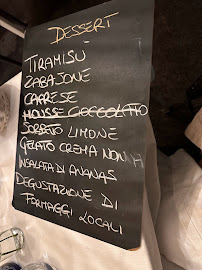 DESSERT
-
TIRAMISÙ
ZABAJONE
CAPRESE
MOUSSE CIOCCOLATO
SORBETTO LIMONE
GELATO CREMA NONNA
INSALATA DI ANANAS
DEGUSTAZIONE DI
FORMAGGI LOCALI